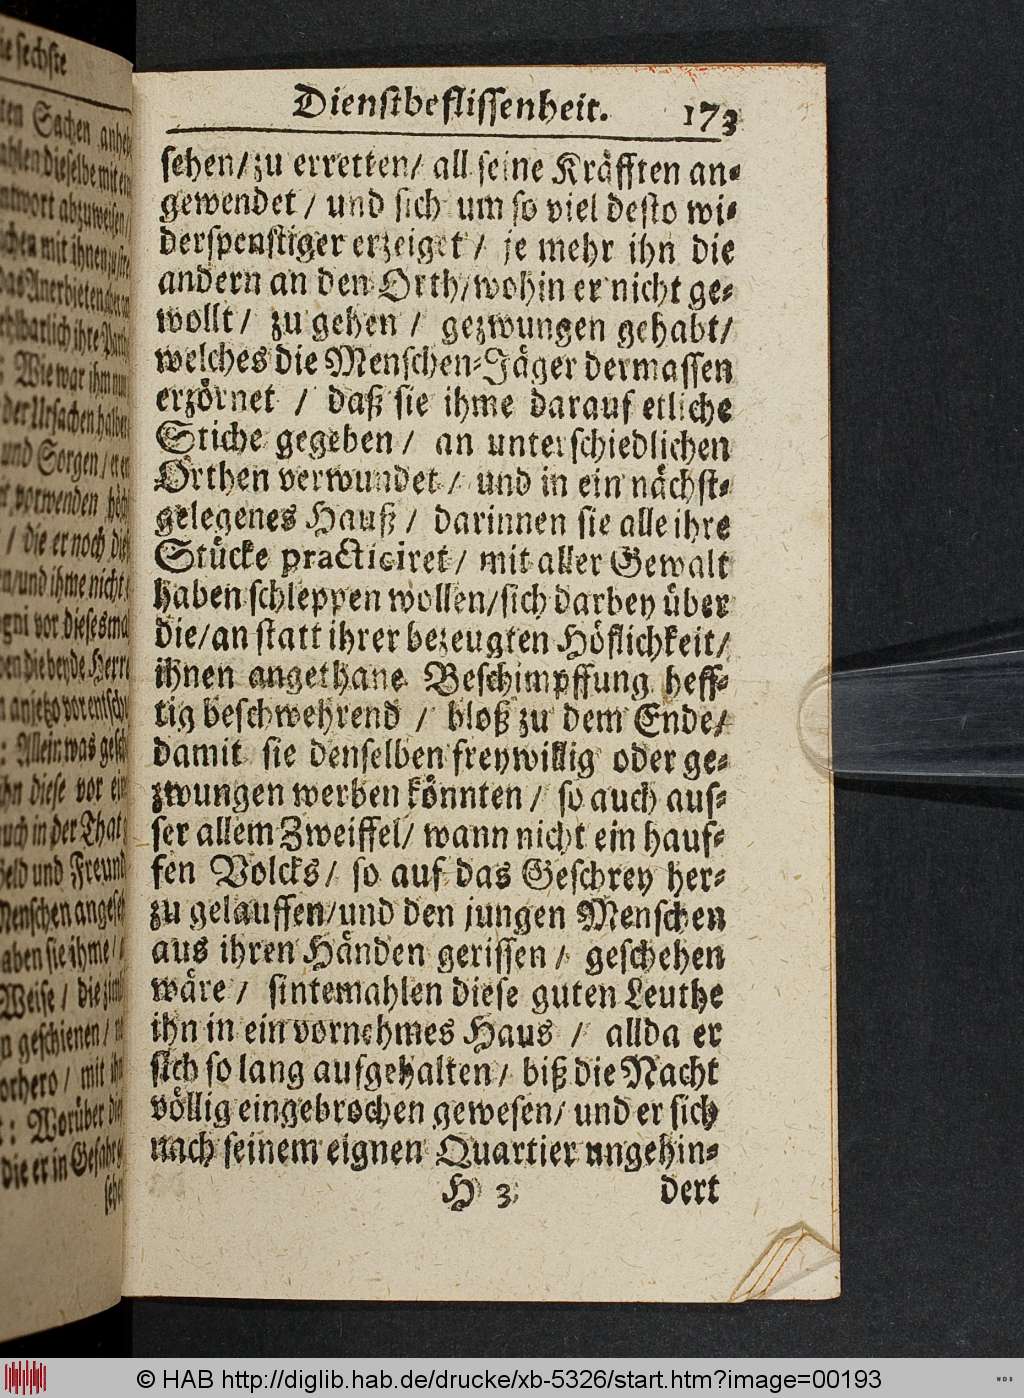 Dienstbeflissenheit. 173
sehen/ zu erretten/ all seine Kräfften an-
gewendet / und sich um so viel desto wi-
derspenstiger erzeiget / je mehr ihn die
andern an den Orth/wohin er nicht ge-
wollt/ zu gehen / gezwungen gehabt/
welches die Menschen-Jäger dermassen
erzörnet / daß sie ihme darauf etliche
Stiche gegeben / an unterschiedlichen
Orthen verwundet / und in ein nächst-
gelegenes Hauß / darinnen sie alle ihre
Stücke practiciret / mit aller Gewalt
haben schleppen wollen/sich darbey über
die/an statt ihrer bezeugten Höflichkeit/
ihnen angethane Beschimpffung heff-
tig beschwehrend / bloß zu dem Ende/
damit sie denselben freywillig oder ge-
zwungen werben könnten / so auch auf-
ser allem Zweiffel/ wann nicht ein hauf-
fen Volcks/ so auf das Geschrey her-
zu gelauffen/und den jungen Menschen
aus ihren Händen gerissen / geschehen
wäre / sintemahlen diese guten Leuthe
ihn in ein vornehmes Haus / allda er
sich so lang aufgehalten/ biß die Nacht
völlig eingebrochen gewesen/ und er sich
nach seinem eignen Quartier ungehin-
H 3 dert
sechste
Sachen
und Sorgen/
vorwenden
/ die er noch
/und ihme nicht
vor dieses mal
Allein was
diese vor
in der That
Geld und Freund
Menschen
haben sie ihme/
Weise /
geschienen /
/ mit
: Worüber
die er in Gefahr
© HAB http://diglib.hab.de/drucke/xb-5326/start.htm?image=00193